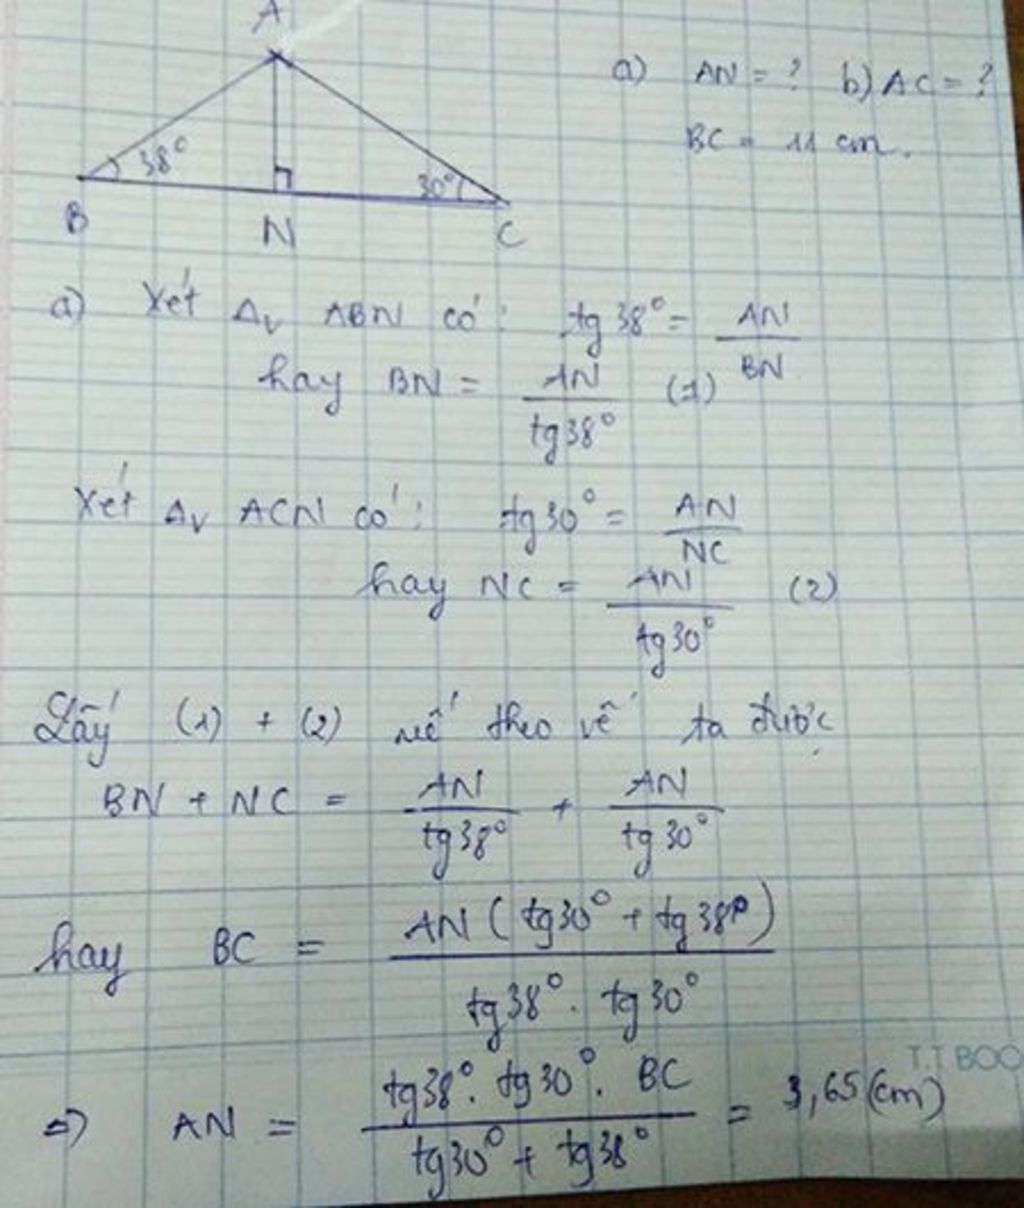 A
a) AN = ? b) AC = ?
BC = 11 cm.
38° 30°
B N C
a) Xét Δv ABN có: tg 38° = AN / BN
hay BN = AN / tg38° (1)
Xét Δv ACN có: tg30° = AN / NC
hay NC = AN / tg30° (2)
Lấy (1) + (2) theo vế ta được
BN + NC = AN / tg38° + AN / tg30°
hay BC = AN (tg30° + tg38°) / tg38° . tg30°
T.T BOO
=> AN = tg38° . tg30° . BC / tg30° + tg38° = 3,65 (cm)